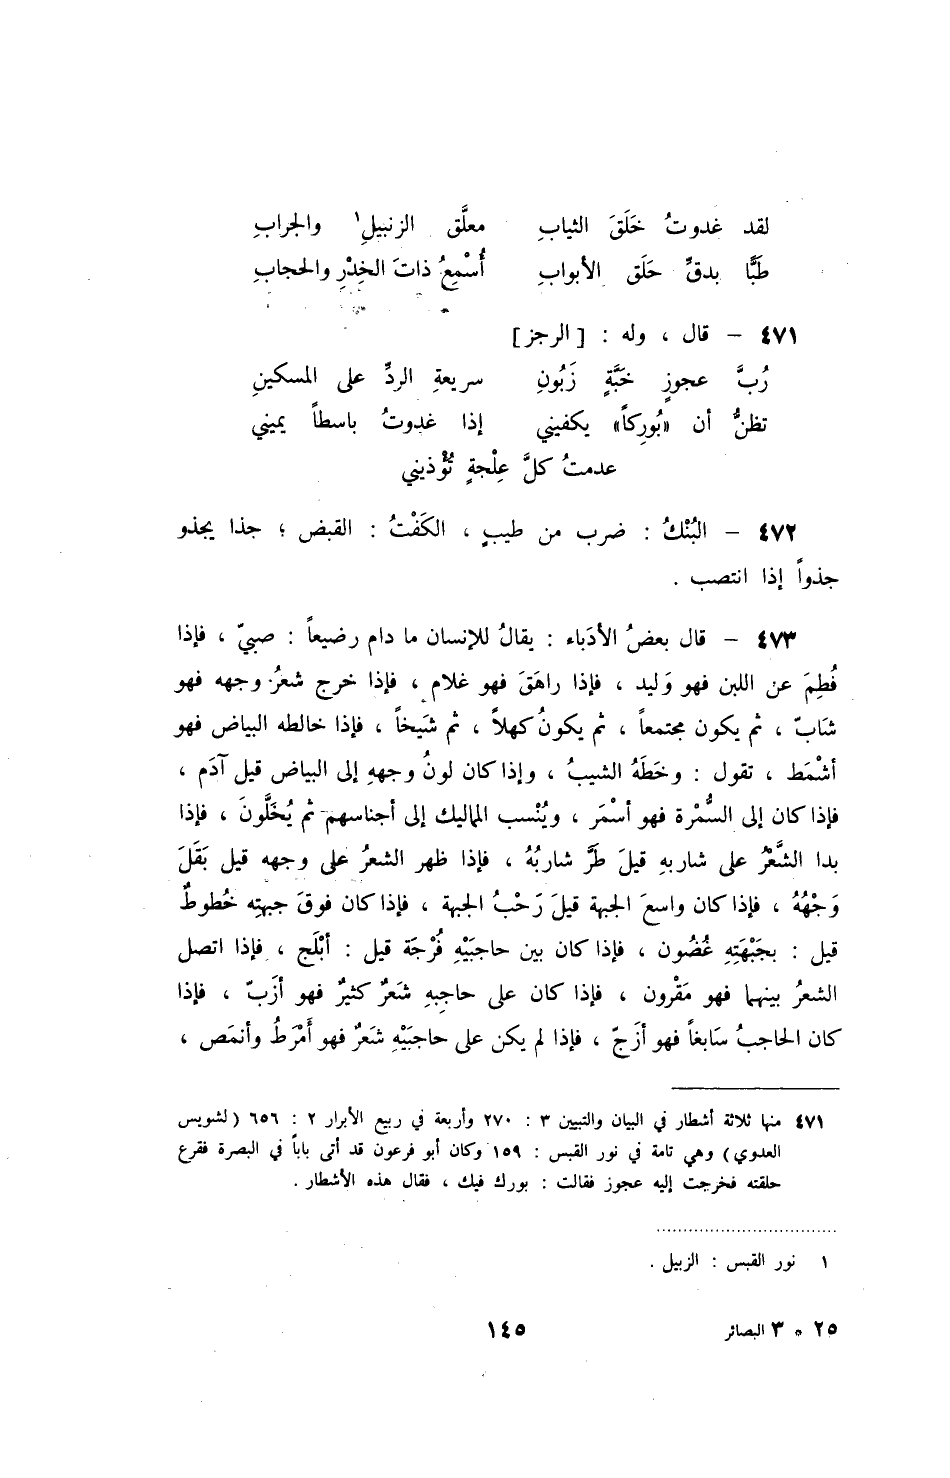 لقد غدوتُ خَلَقَ الثيابِ معلَّق الزنبيلِ١ والجرابِ
طَبًّا بدقِّ حَلَق الأبوابِ أُسْمِعُ ذاتَ الخِدْرِ والحجابِ
٤٧١ – قال ، وله : [ الرجز ]
رُبَّ عجوزٍ خَبَّةٍ زَبُونِ سريعةِ الردِّ على المسكينِ
تظنُّ أن «بُورِكاً» يكفيني إذا غدوتُ باسطاً يميني
عدمتُ كلَّ عِلْجةٍ تُؤْذيني
٤٧٢ – البُنْكُ : ضرب من طيبٍ ، الكَفْتُ : القبض ؛ جذا يجذو
جذواً إذا انتصب .
٤٧٣ – قال بعضُ الأدَباء : يقالُ للإنسان ما دام رضيعاً : صبيّ ، فإذا
فُطِمَ عن اللبن فهو وَليد ، فإذا راهَقَ فهو غلام ، فإذا خرج شعرُ وجهه فهو
شَابّ ، ثم يكون مجتمعاً ، ثم يكونُ كهلاً ، ثم شَيخاً ، فإذا خالطه البياض فهو
أشْمَط ، تقول : وخَطَهُ الشيبُ ، وإذا كان لونُ وجههِ إلى البياض قيل آدَم ،
فإذا كان إلى السُّمْرة فهو أسْمَر ، ويُنْسب المماليك إلى أجناسهم ثم يُحَلَّونَ ، فإذا
بدا الشَّعْرُ على شاربهِ قيلَ طَرَّ شاربُهُ ، فإذا ظهر الشعرُ على وجهه قيل بَقَلَ
وَجْهُهُ ، فإذا كان واسعَ الجبهة قيلَ رَحْبُ الجبهة ، فإذا كان فوقَ جبهتِه خُطوطٌ
قيل : بجَبْهَتِهِ غُضُون ، فإذا كان بين حاجبَيْهِ فُرْجَة قيل : أبْلَج ، فإذا اتصل
الشعرُ بينهما فهو مَقْرون ، فإذا كان على حاجِبهِ شَعرٌ كثيرٌ فهو أزَبّ ، فإذا
كان الحاجبُ سَابغاً فهو أزَجّ ، فإذا لم يكن على حاجبَيْهِ شَعرٌ فهو أَمْرَطُ وأنمَص ،
٤٧١ منها ثلاثة أشطار في البيان والتبيين ٣ : ٢٧٠ وأربعة في ربيع الأبرار ٢ : ٦٥٦ (لشويس
العدوي) وهي تامة في نور القبس : ١٥٩ وكان أبو فرعون قد أتى باباً في البصرة فقرع
حلقته فخرجت إليه عجوز فقالت : بورك فيك ، فقال هذه الأشطار .
١ نور القبس : الزبيل .
٢٥ * ٣ البصائر ١٤٥